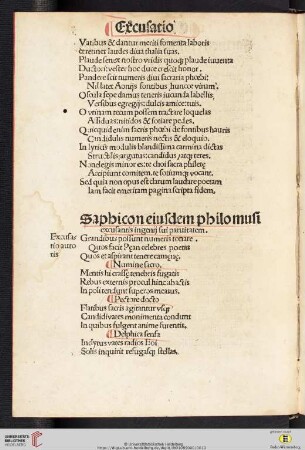 Excusatio
Vatibus & dantur meriti fomenta laboris
& tenuer laudes diua thalia suas.
Plaude senex nostro viridis quoque plaude iuuenta
Doctior vester hoc duce crescit honor.
Pandere scit numeris diui sacraria phoebi
Nil latet Aonijs fontibus hunc virum.
Oscula sepe damus teneris iucunda labellis
Versibus egregijs dulcis amice tuis.
O vtinam tecum possem tractare loquelas
Assiduas nitidos & sociare pedes.
Quicquid enim sacris phoebi de fontibus hauris
Candidulis numeris noctis & eloquio.
In lyricis modulis blandissima carmina dictas
Structilis argutas candidus atque teres.
Non elegis minor es te choi sacra phileta
Accipiunt comitem. te sociumque vocant.
Sed quid non opus est darum laudare poetam
Iam facit emeritam pagina scripta fidem.
Saphicon eiusdem philomusi
excusantis ingenij sui paruitatem.
Excusatio autoris
Grandibus possent numeris tonare
Quos facit Pean celebres poetas
Quos et aspirans tenet
Numine sacro.
Mentis hi crassę tenebris fugatis
Rebus externis procul hinc abactis
In poli tendunt superos meatus.
Pectore docto
Flatibus sacris agitantur
Candidi vates monimenta condunt
In quibus fulgent animę furentis.
Delphica sensa
In dyrus vates radios Eoi
Solis inquirit refugasque stellas.
UNIVERSITÄTS-BIBLIOTHEK HEIDELBERG
© Universitätsbibliothek Heidelberg